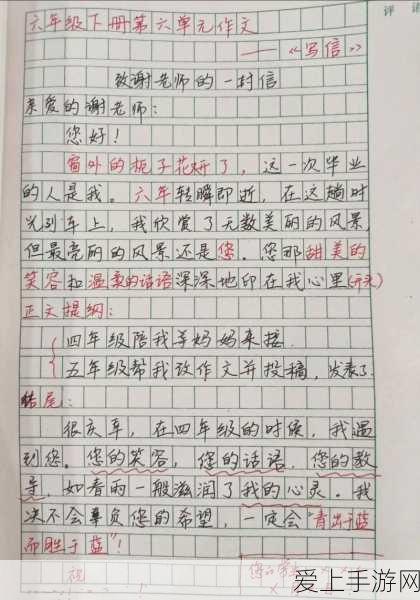 六年级下册第六单元作文
评语
——《写信》
致谢老师的一封信
亲爱的谢老师：
您好！
窗外的栀子花开了，这一次毕业
的人是我。六年转瞬即逝，在这趟时
光列车上，我欣赏了无数美丽的风景，
但最亮丽的风景还是您。您那甜美的
笑容和温柔的话语深深地印在我心里(开头)
正文提纲：
四年级陪我等妈妈来接.
五年级帮我改作文并投稿，发表了.
结尾：
很庆幸，在四年级的时候，我遇
到您。您的笑容，您的话语，您的教
导，如春雨一般滋润了我的心灵。我
决不会辜负您的希望，一定会“青出于蓝
而胜于蓝”！
祝
您的学生
爱上手游网